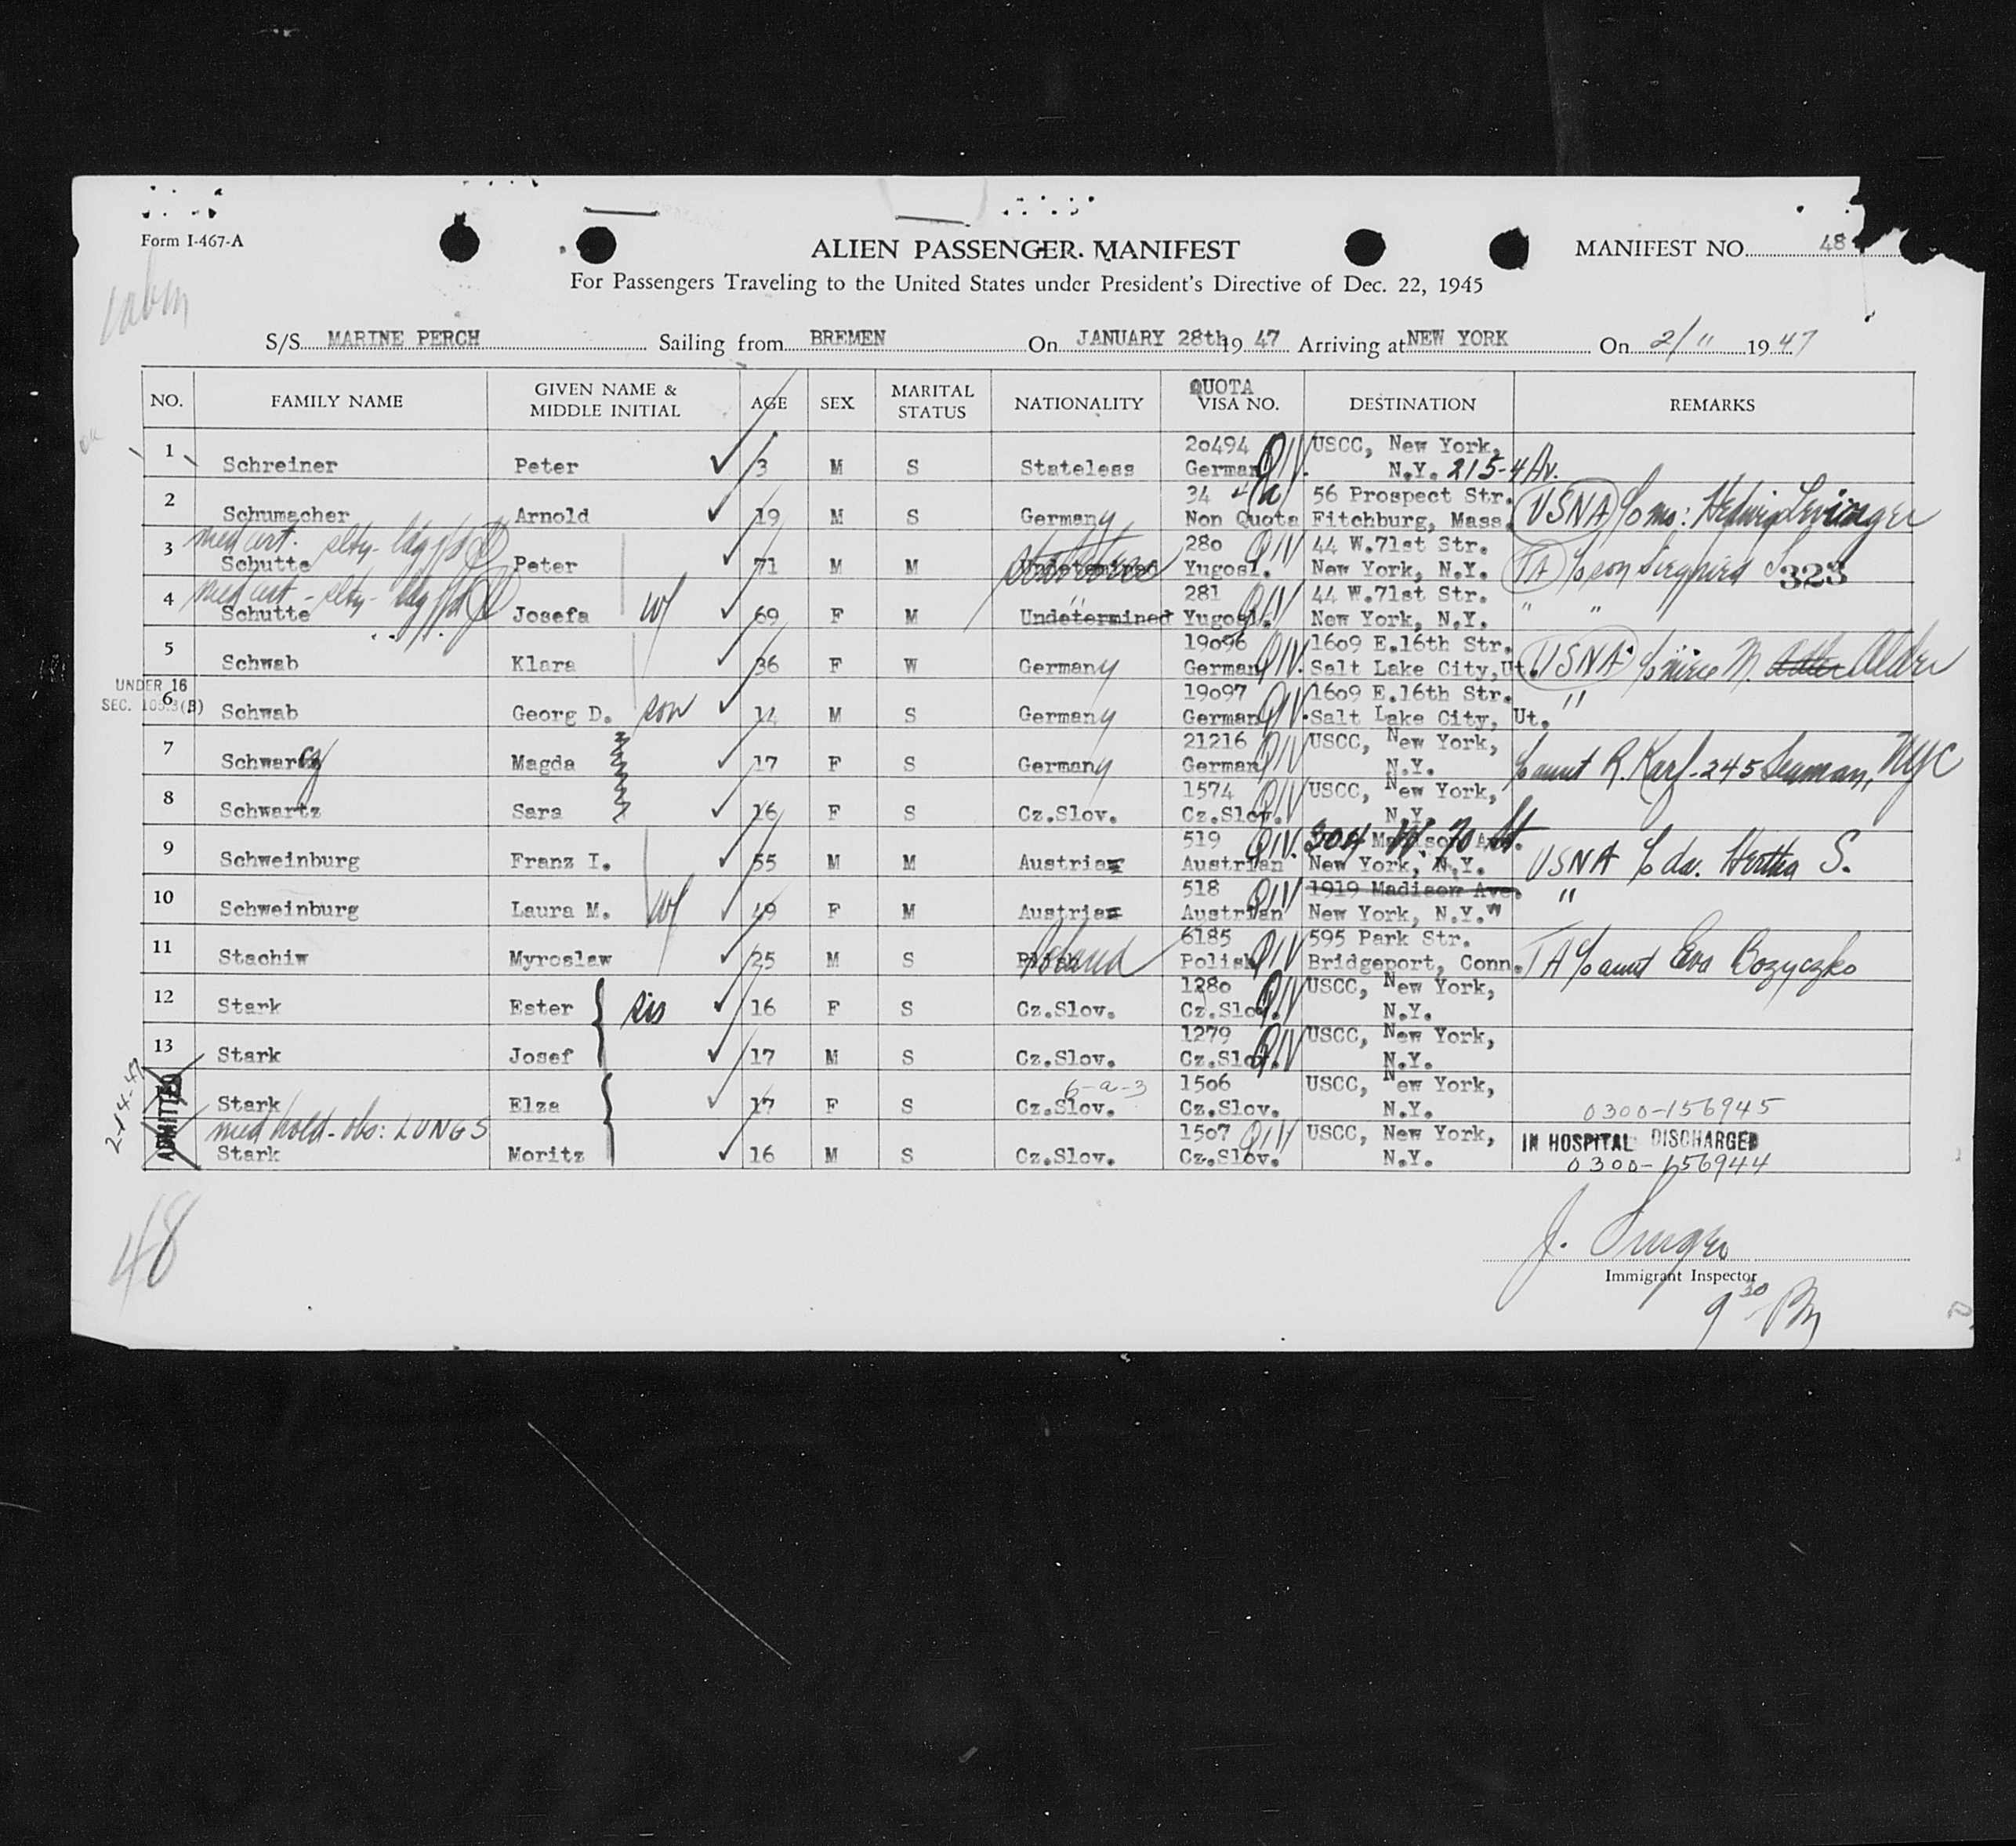 Form I-467-A
ALIEN PASSENGER MANIFEST
MANIFEST NO. 48
For Passengers Traveling to the United States under President's Directive of Dec. 22, 1945
S/S MARINE PERCH Sailing from BREMEN On JANUARY 28th 19 47 Arriving at NEW YORK On 2/11 19 47
NO. FAMILY NAME GIVEN NAME & MIDDLE INITIAL AGE SEX MARITAL STATUS NATIONALITY QUOTA VISA NO. DESTINATION REMARKS
20494 QIV USCC, New York,
1 Schreiner Peter 3 M S Stateless German N.Y. 215-4 Av.
34 56 Prospect Str.
2 Schumacher Arnold 19 M S Germany Non Quota Fitchburg, Mass. USNA c/o mo: Hedwig
med cert.
280 QIV 44 W.71st Str.
3 Schutte Peter 71 M M Undetermined Yugosl. New York, N.Y. TA c/o son Siegfried S 323
med cert
281 QIV 44 W.71st Str.
4 Schutte Josefa W 69 F M Undetermined Yugosl. New York, N.Y. " "
19096 QIV 1609 E.16th Str.
5 Schwab Klara 36 F W Germany German Salt Lake City, Ut. USNA c/o niece M. Adler Alder
UNDER 16
SEC. 105.3(B)
19097 QIV 1609 E.16th Str.
6 Schwab Georg D. son 14 M S Germany German Salt Lake City, Ut. "
21216 QIV USCC, New York,
7 Schwarcz Magda 17 F S Germany German N.Y. c/o aunt R. Karf - 245 Seaman, NYC
1574 QIV USCC, New York,
8 Schwartz Sara 16 F S Cz.Slov. Cz.Slov. N.Y.
519 QIV. 304 W. 70 St.
9 Schweinburg Franz I. 55 M M Austria Austrian New York, N.Y. USNA c/o da. Hertha S.
518 QIV 1919 Madison Ave.
10 Schweinburg Laura M. W 49 F M Austria Austrian New York, N.Y. "
6185 QIV 595 Park Str.
11 Stachiw Myroslaw 25 M S Poland Polish Bridgeport, Conn. TA c/o aunt Eva Bozyczko
1280 QIV USCC, New York,
12 Stark Ester sis 16 F S Cz.Slov. Cz.Slov. N.Y.
1279 QIV USCC, New York,
13 Stark Josef 17 M S Cz.Slov. Cz.Slov. N.Y.
2-14-47 ADMITTED
6-a-3 1506 USCC, New York,
Stark Elza 17 F S Cz.Slov. Cz.Slov. N.Y. 0300-156945
med hold - obs: LUNGS
1507 QIV USCC, New York, IN HOSPITAL DISCHARGED
Stark Moritz 16 M S Cz.Slov. Cz.Slov. N.Y. 0300-156944
48
J. Singer
Immigrant Inspector
9 30 PM